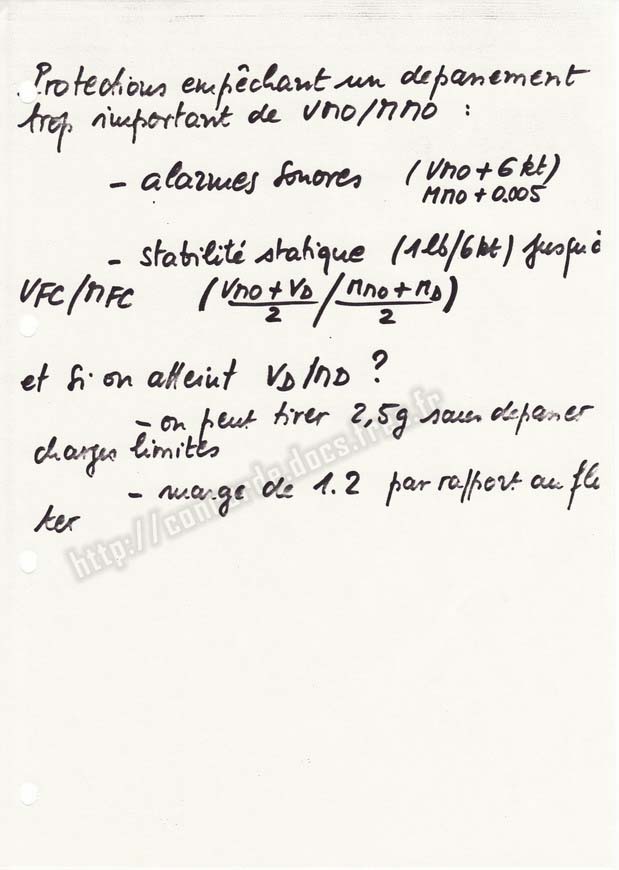 Protections empêchant un depassement
trop important de VMO/MMO :
- alarmes sonores (VMO + 6 kt)
MMO + 0.005
- stabilité statique (1 lb/6kt) jusqu'à
VFC/MFC (VMO + VD / MMO + MD)
2 2
et si on atteint VD/MD ?
- on peut tirer 2,5g sans depasser
charges limites
- marge de 1.2 par rapport au flu
tter
http://concorde.docs.free.fr